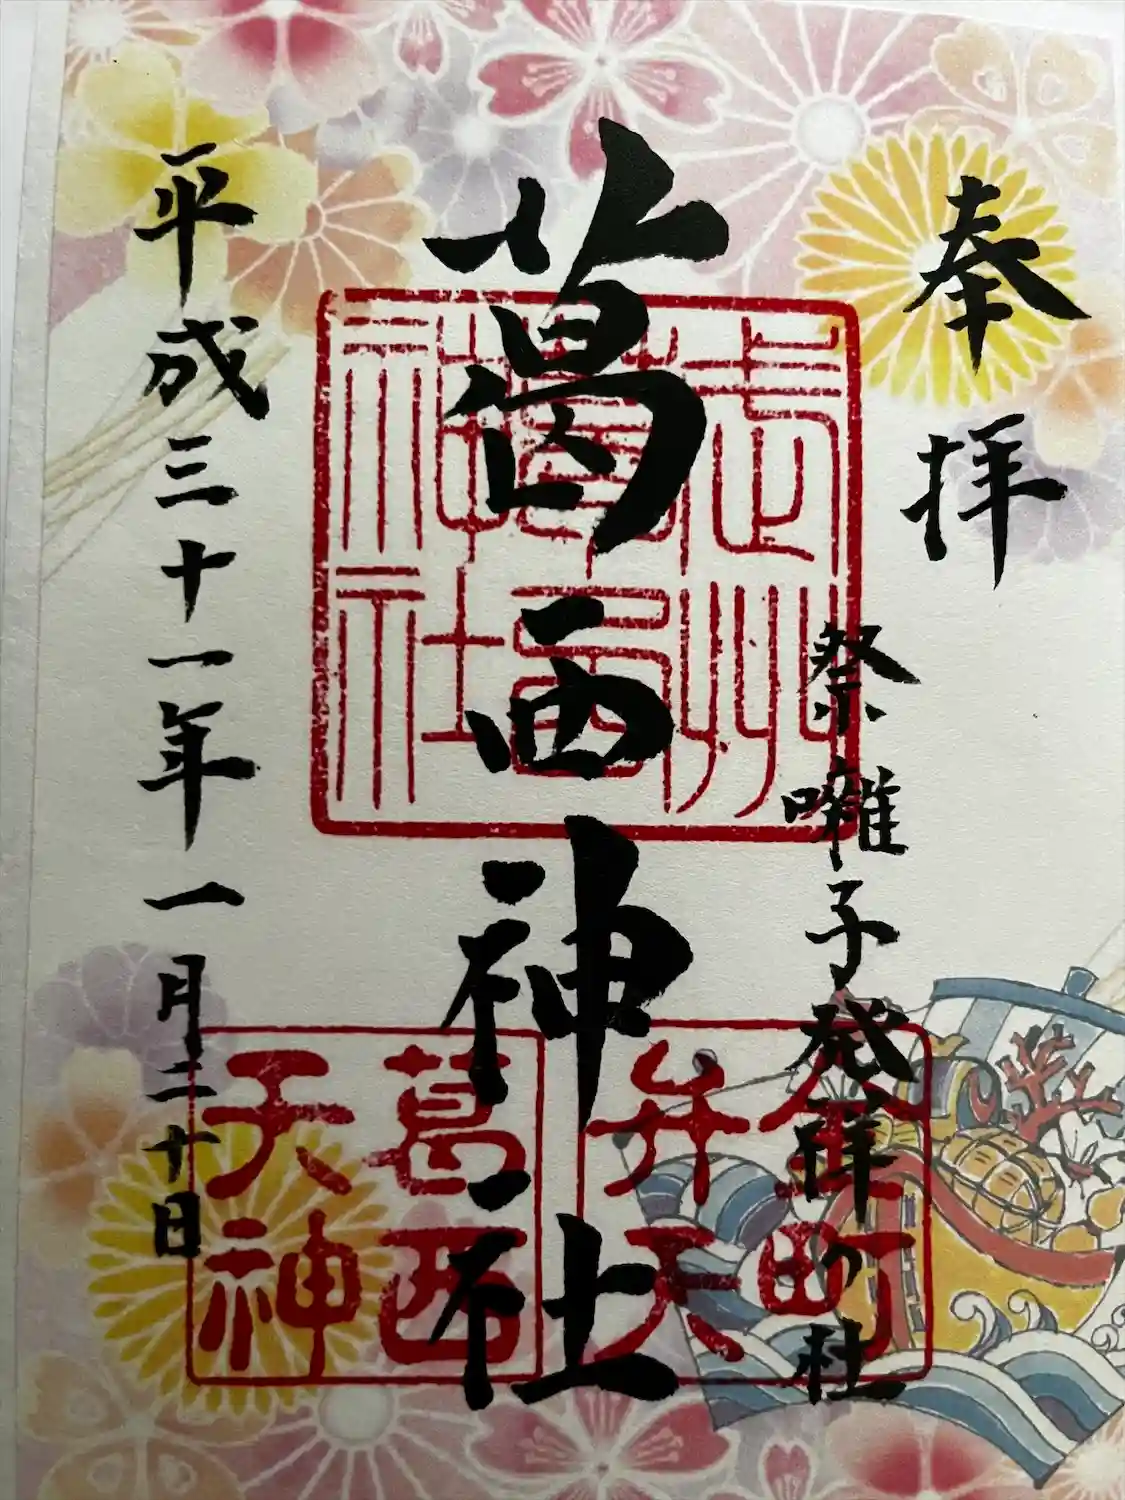 奉拝
祭囃子発祥の社
葛西神社
平成三十一年一月二十日
武州葛西神社
金町弁天
葛西天神